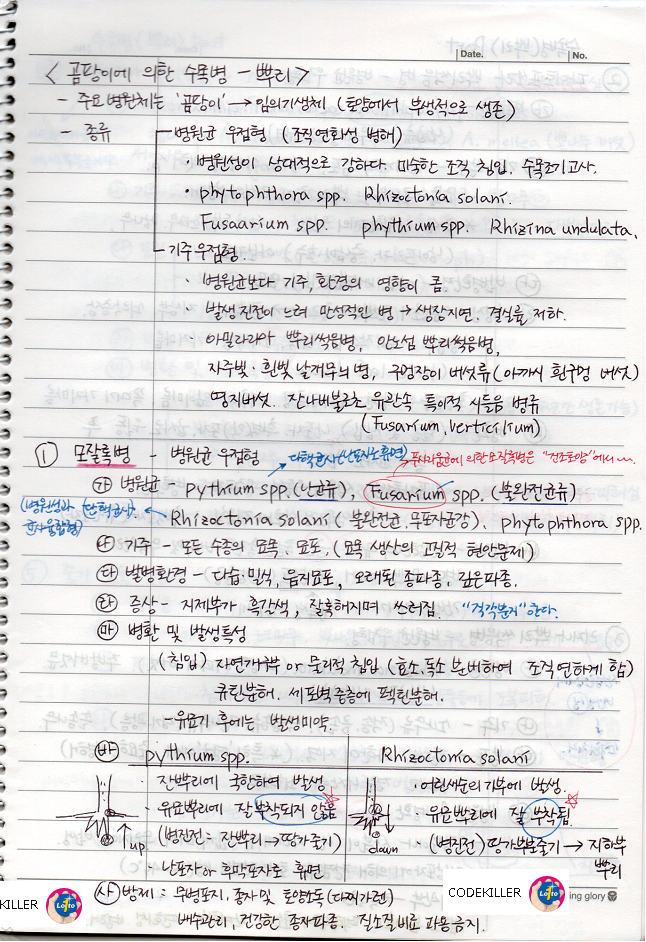 Date.
No.
< 곰팡이에 의한 수목병 - 뿌리 >
- 주요병원체는 '곰팡이' → 임의기생체 (토양에서 부생적으로 생존)
- 종류
병원균 우점형 (조직연화성 병해)
· 병원성이 상대적으로 강하다. 미숙한 조직 침입. 수목조기고사.
· phytophthora spp. Rhizoctonia solani.
Fusaarium spp. phythium spp. Rhizina undulata.
기주우점형.
· 병원균보다 기주, 환경의 영향이 큼.
· 발생진전이 느려 만성적인 병 → 생장지연. 결실률 저하.
· 아밀라리아 뿌리썩음병, 안노섬 뿌리썩음병,
자주빛·흰빛 날개무늬병, 구멍장이 버섯류 (아까시 흰구멍 버섯)
영지버섯. 잔나비불로초. 유관속 특이적 시들음 병류
(Fusarium, verticillium)
① 모잘록병 - 병원균 우점형
다핵균사(난포자노류면) 푸사리움균에 의한 모잘록병은 "건조토양"에서
㉮ 병원균 Pythium spp. (난균류), Fusarium spp. (불완전균류)
(병원성과 균사융합형) (다핵균사) ← Rhizoctonia solani (불완전균, 무포자균강). phytophthora spp.
㉯ 기주 - 모든 수종의 묘목. 묘포. (묘목 생산의 고질적 현안문제)
㉰ 발병환경 - 다습, 밀식, 음지묘포, 오래된 종자파종, 깊은파종.
㉱ 증상 - 지제부가 흑갈색, 잘록해지며 쓰러짐. "직각분지" 한다.
㉲ 병환 및 발생특성
(침입) 자연개구부 or 물리적 침입 (효소, 독소 분비하여 조직연하게 함)
큐틴분해. 세포벽 중층에 펙틴분해.
- 유묘기 후에는 발생미약.
㉳ pythium spp.
· 잔뿌리에 국한하여 발생
· 유묘뿌리에 잘 부착되지 않음
(병진전: 잔뿌리 → 땅가줄기)
· 난포자 or 후막포자로 휴면
up
Rhizoctonia solani
· 어린새순의 기부에 발생.
· 유묘뿌리에 잘 부착됨.
· (병진전) 땅가부분줄기 → 지하부 뿌리
down
㉴ 방제 : 무병포지, 종자 및 토양소독 (다찌가렌)
배수관리, 건강한 종자파종. 질소질비료 과용금지.
KILLER
Lotto
CODEKILLER
Lotto
ing glory